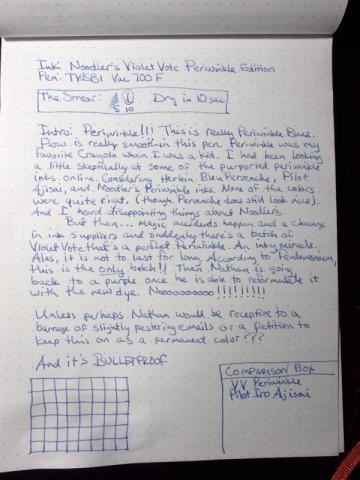 Ink: Noodler's Violet Vote Periwinkle Edition
Pen: TWSBI Vac 700 F
The Smear: 5 10 Dry in 10 sec
Intro: Periwinkle!!! This is really Periwinkle Blue.
Flow is really smooth in this pen. Periwinkle was my
favorite Crayola when I was a kid. I had been looking
a little skeptically at some of the purported periwinkle
inks online. Considering Herbin Bleu Pervenche, Pilot
Ajisai, and Noodler's Periwinkle inks. None of the colors
were quite right, (though Pervenche does still look nice).
And I heard disappointing things about Noodlers.
But then... magic accidents happen and a change
in ink suppliers and suddenly there's a batch of
Violet Vote that's a perfect Periwinkle. An inky miracle.
Alas, it is not to last for long. According to Pendemonium,
this is the only batch!! Then Nathan is going
back to a purple once he is able to reformulate it
with the new dye. Noooooooooo!!!!!!!!!
Unless perhaps Nathan would be receptive to a
barrage of slightly pestering emails or a petition to
keep this on as a permanent color???
And it's BULLETPROOF
COMPARISON BOX
VV Periwinkle
Pilot Iro Ajisai